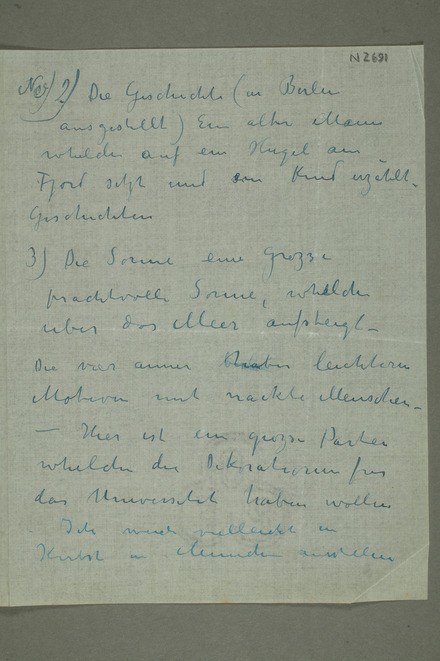 N 2691
No) 2) Die Geschichte (in Berlin
ausgestellt) Ein alter Mann
whelche auf ein Hugel am
Fjord sitzt und ein Kind erzählt
Geschichten
3) Die Sonne eine grosse
prachtvolle Sonne, whelche
uber das Meer aufsteigt –
Die vier leichtere
Motiven mit nackte Menschen –
– Hier ist ein grosse Partei
whelche die Dekorationen
das Universität haben wollen
Ich werde vielleicht in
Herbst in Munchen ausstellen